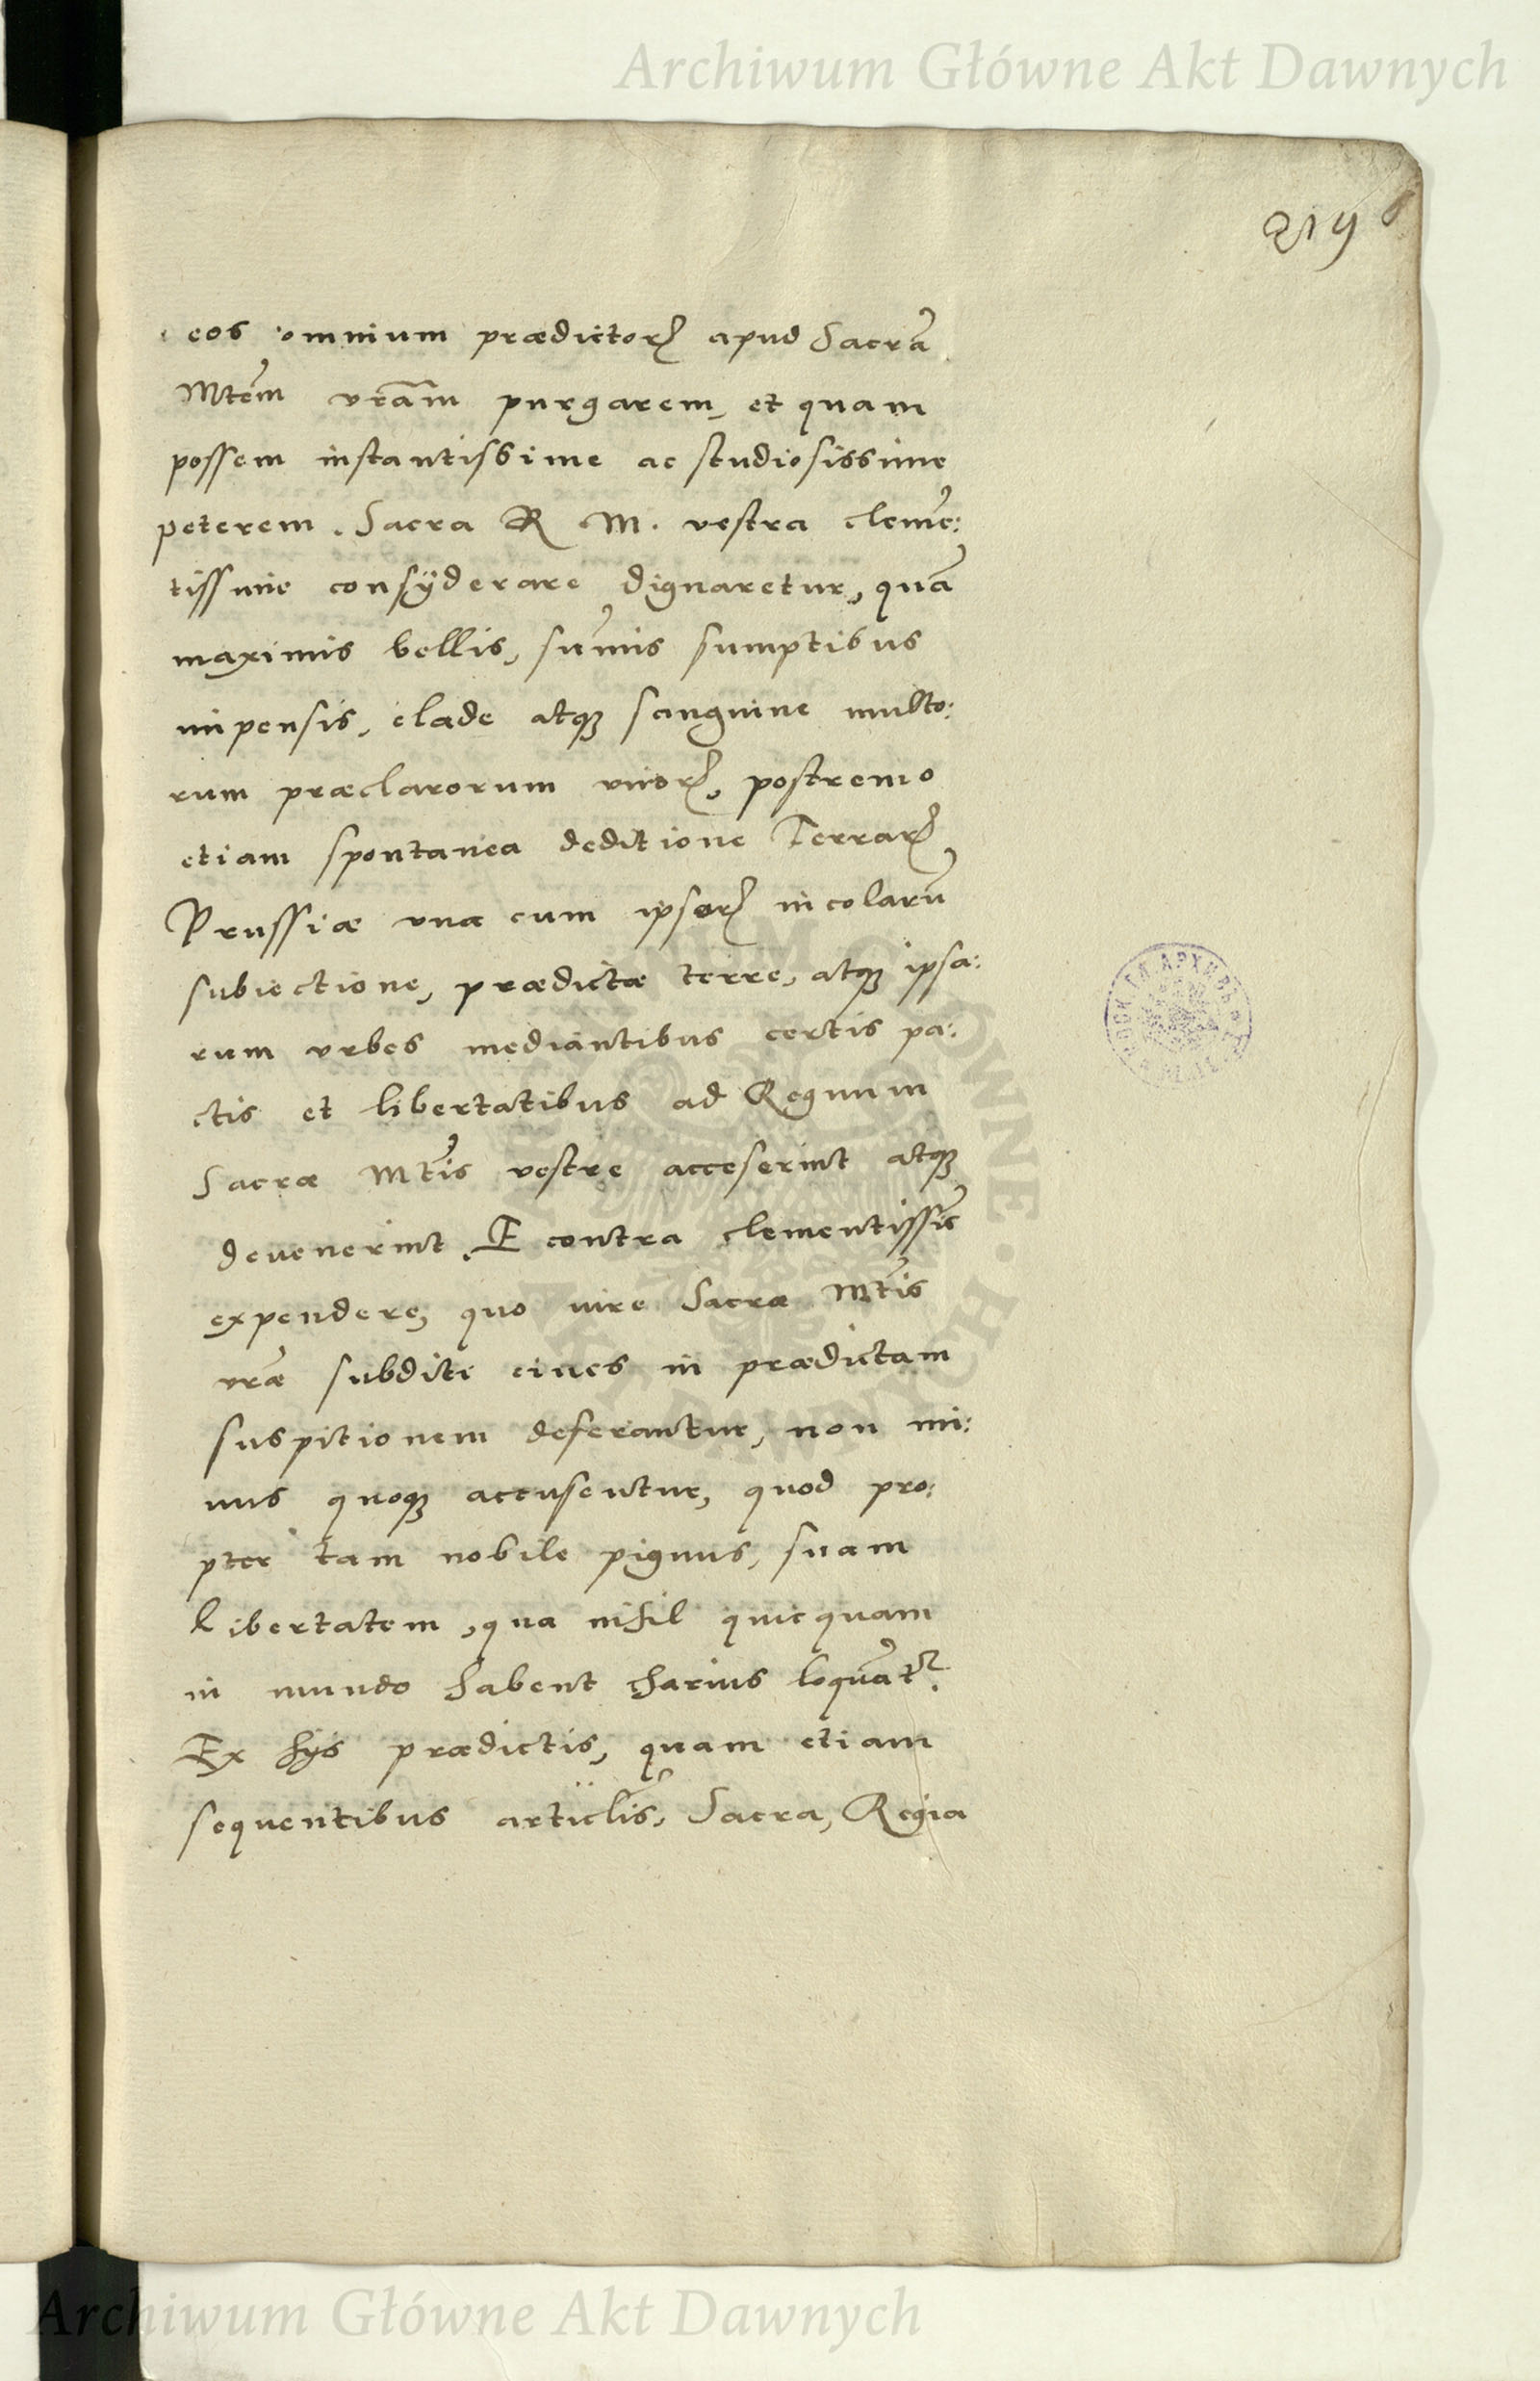 Archiwum Główne Akt Dawnych
219
eos omnium prædictorꝝ apud Sacrã
Mtẽm vrãm purgarem, et quam
possem instantissime ac studiosissime
peterem. Sacra R M. vestra clemẽ:
tissime consÿderare dignaretur, quã
maximis bellis, sum̃is sumptibus
impensis, clade atqꝫ sanguine multo:
rum præclarorum virorꝝ, postremo
etiam spontanea deditione Terrarꝝ
Prussiæ vna cum ipsorꝝ incolarũ
subiectione, prædictæ terre, atqꝫ ipsa:
rum vrbes mediantibus certis pa:
ctis et libertatibus ad Regnum
Sacræ Mtĩs vestre acceserint atqꝫ
devenerint. E contra clementissĩe
expendere, quo iure Sacræ Mtĩs
vræ̃ subditi ciues in prædictam
suspitionem deferantur, non mi:
nus quoqꝫ accusentur, quod pro:
pter tam nobile pignus, suam
Libertatem, qua nihil quicquam
in mundo habent charius loquãtr.
Ex hijs prædictis, quam etiam
sequentibus articl̃is, Sacra, Regia
Archiwum Główne Akt Dawnych